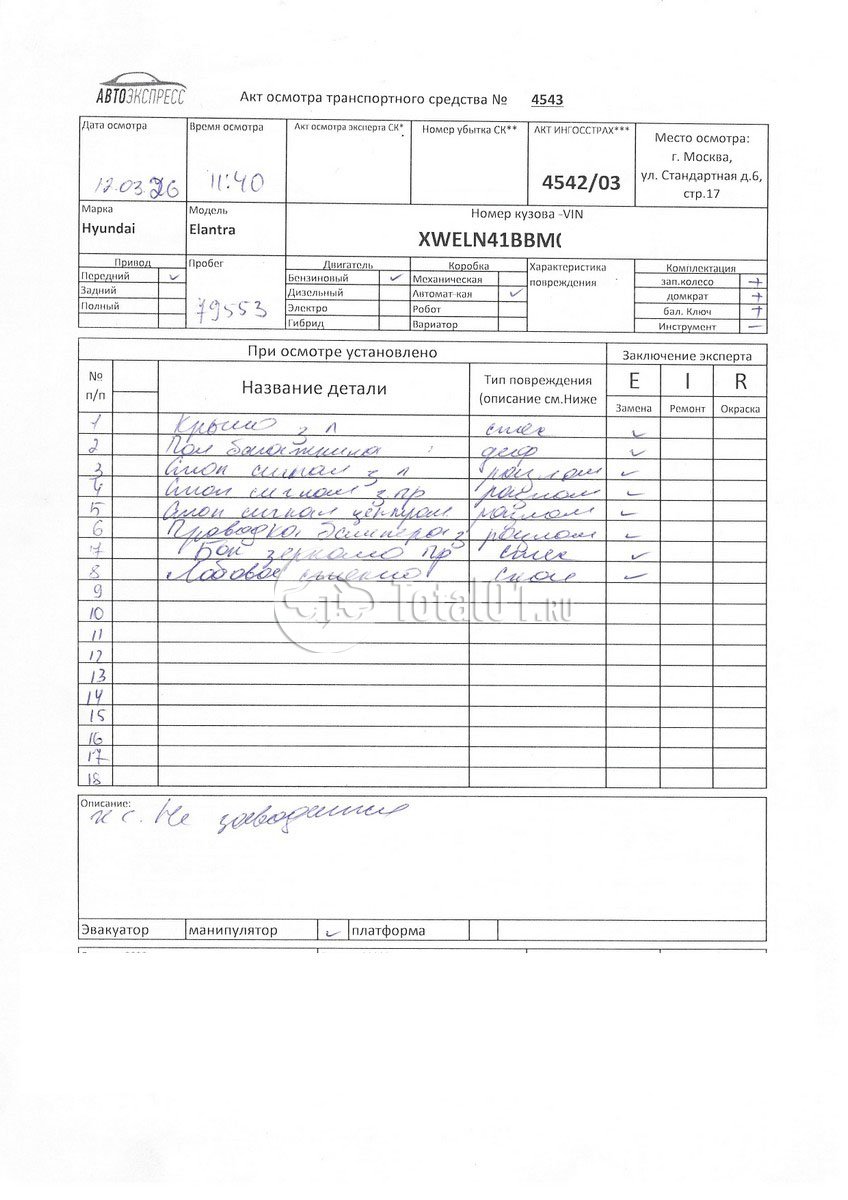 АВТОЭКСПРЕСС
Акт осмотра транспортного средства № 4543
Дата осмотра
12.03.26
Время осмотра
11:40
Акт осмотра эксперта СК*
Номер убытка СК**
АКТ ИНГОССТРАХ***
4542/03
Место осмотра:
г. Москва,
ул. Стандартная д.6,
стр.17
Марка
Hyundai
Модель
Elantra
Номер кузова -VIN
XWELN41BBM(
Привод
Передний ✓
Задний
Полный
Пробег
79553
Двигатель
Бензиновый ✓
Дизельный
Электро
Гибрид
Коробка
Механическая
Автомат-кая ✓
Робот
Вариатор
Характеристика
повреждения
Комплектация
зап.колесо +
домкрат +
бал. Ключ +
Инструмент —
При осмотре установлено
Заключение эксперта
№
п/п
Название детали
Тип повреждения
(описание см.Ниже
E I R
Замена Ремонт Окраска
1 з л ✓
2 Пол багажника деф ✓
3 Стоп сигнал з л разлом ✓
4 Стоп сигнал з пр разлом ✓
5 Стоп сигнал централ разлом ✓
6 Проводка бампера з разлом ✓
7 Бок зеркало пр ✓
8 Лобовое стекло скол ✓
9
10
11
12
13
14
15
16
17
18
Total01.RU
Описание:
Не заводится
Эвакуатор манипулятор ✓ платформа